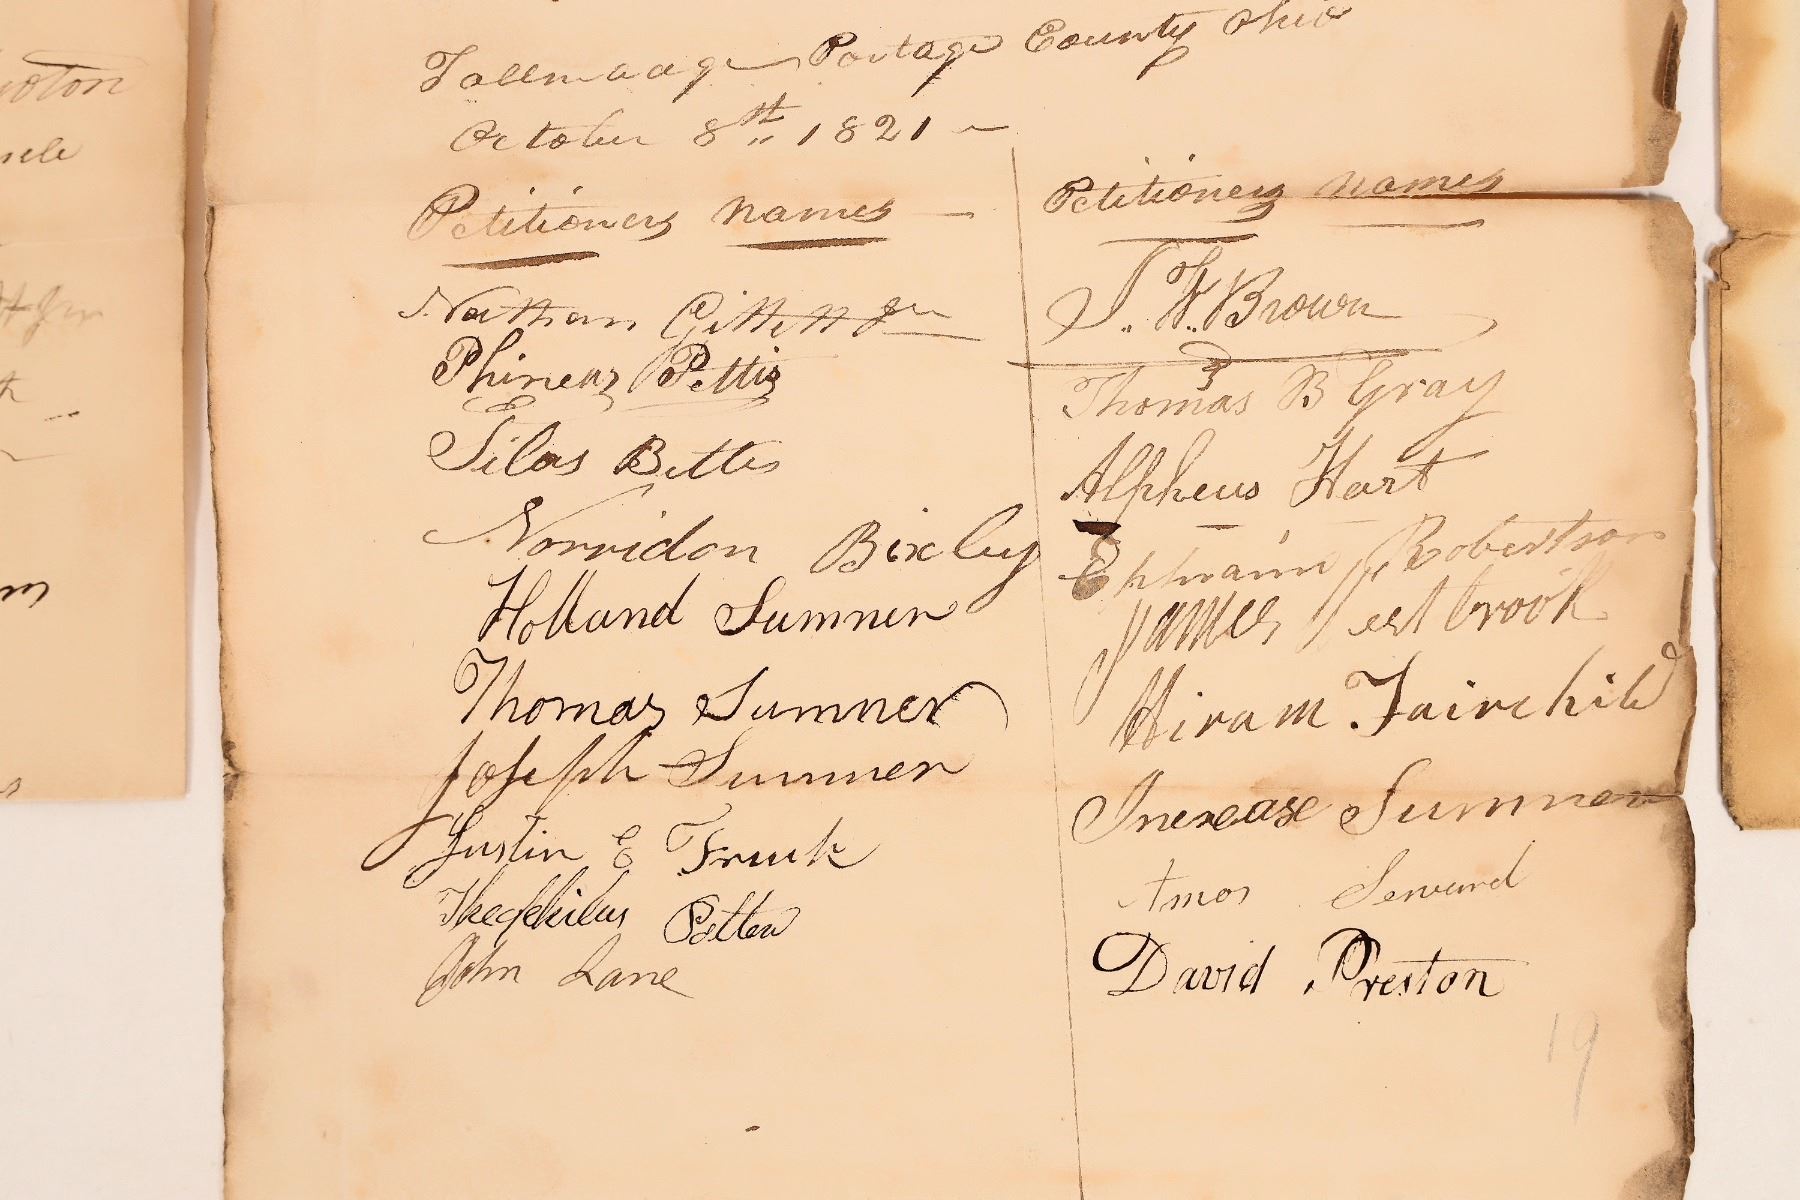 Tallmadge Portage County Ohio
October 8th 1821
Petitioners names
Nathan Gillett Jur
Phineas Pettis
Silas Bettes
Norridon Bixley
Holland Sumner
Thomas Sumner
Joseph Sumner
Justin E Frink
Theophilus Potter
John Lane
Petitioners names
J. W. Brown
Thomas B Gray
Alpheus Hart
Ephraim Robertson
James Westbrook
Hiram Fairchild
Increase Sumner
Amos Seward
David Preston
19